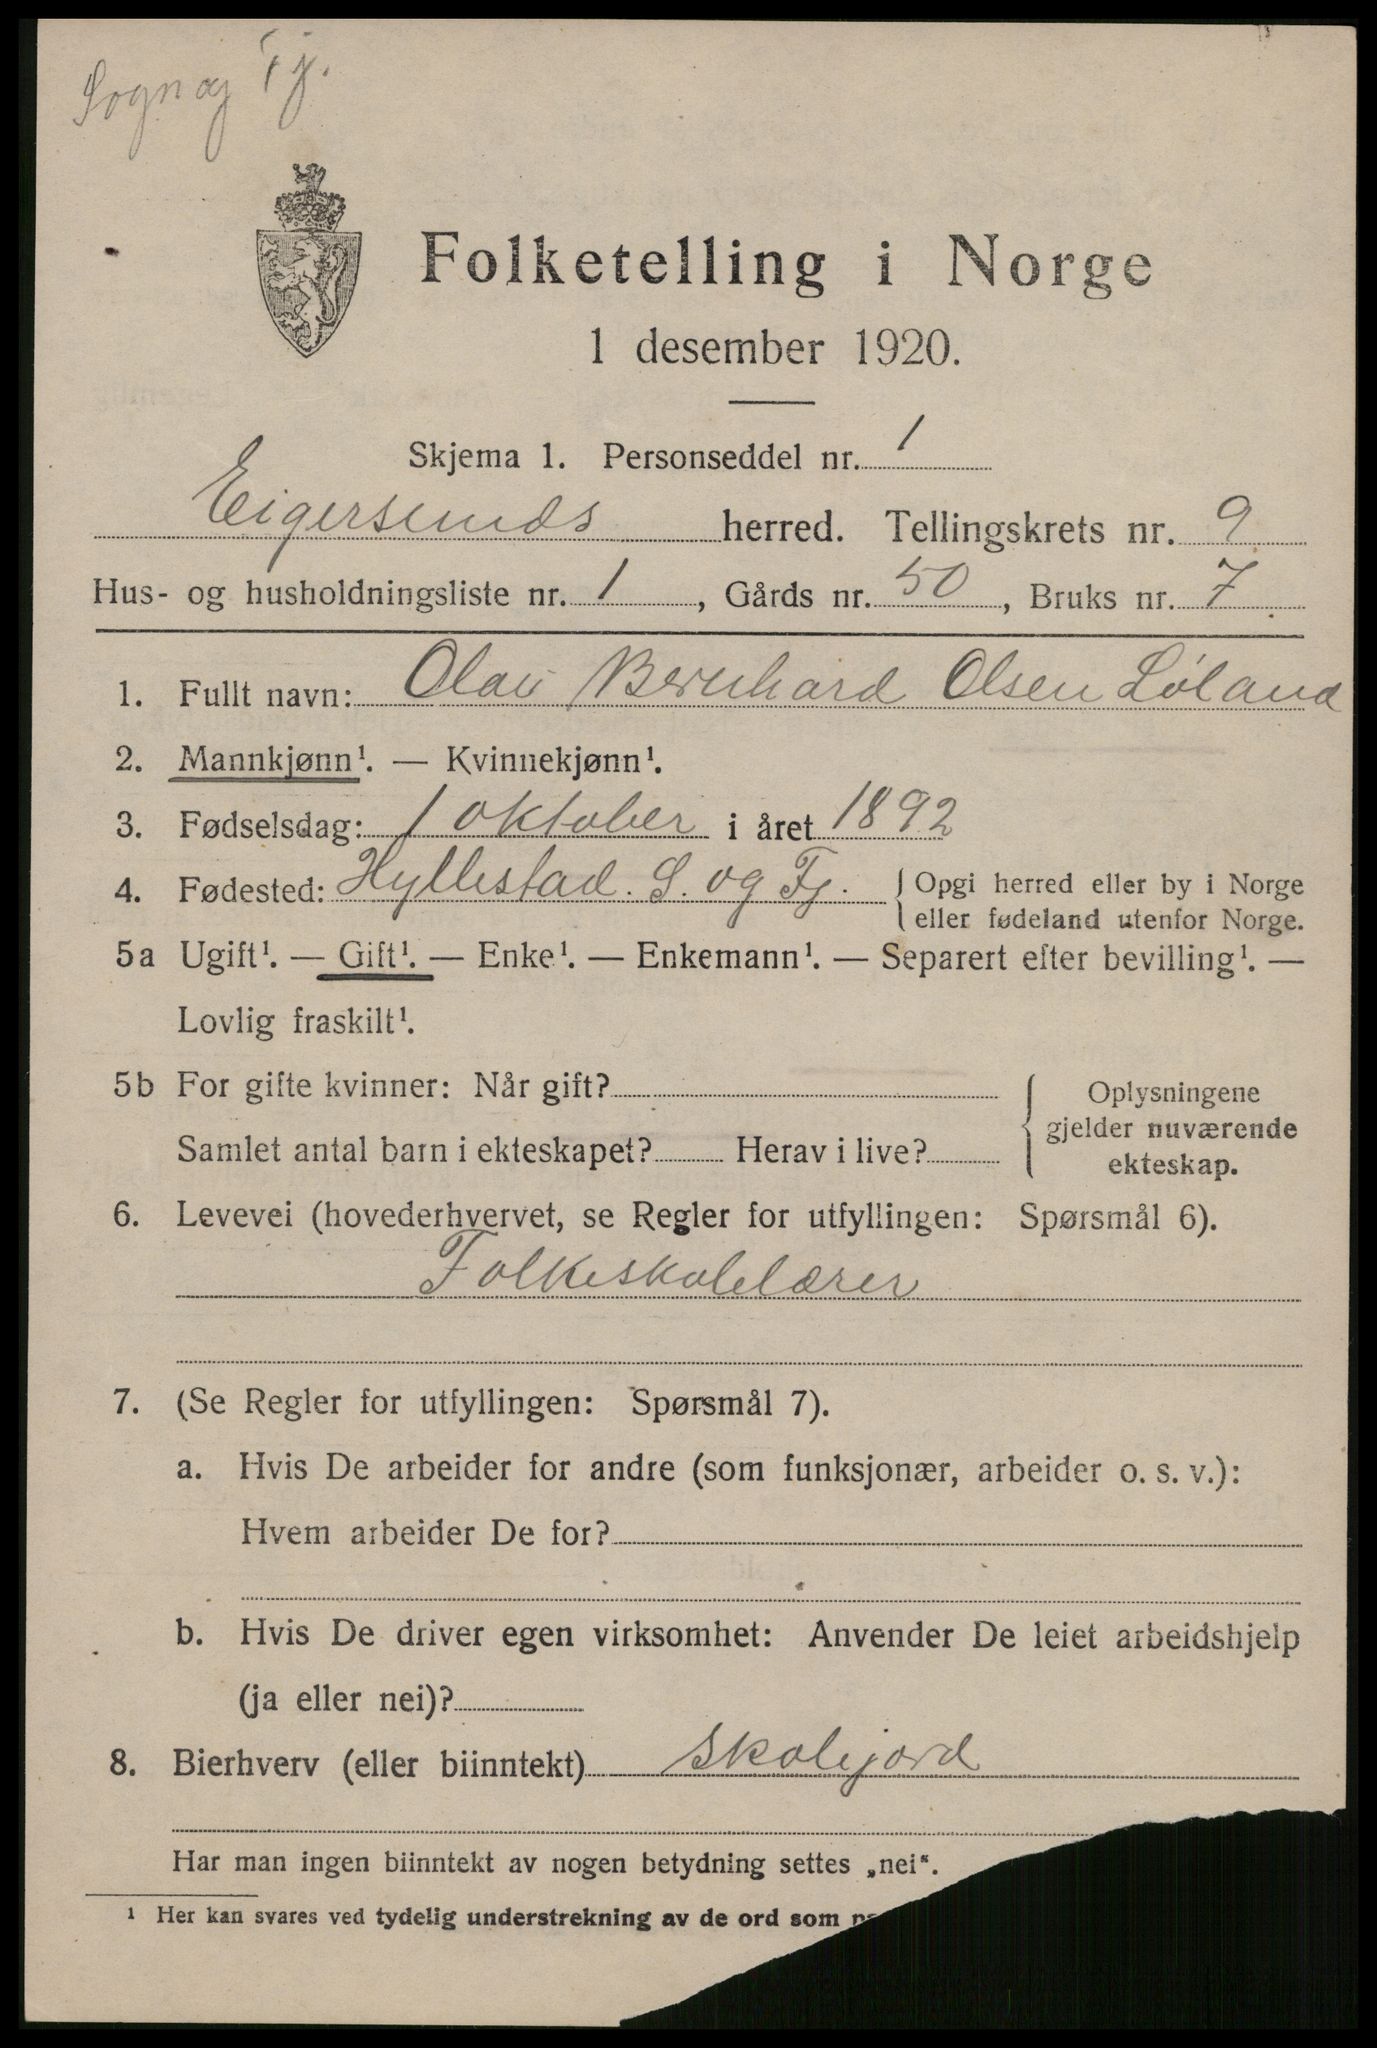 Sogn og Fj.
Folketelling i Norge
1 desember 1920.
Skjema 1. Personseddel nr. 1
Eigersunds herred. Tellingskrets nr. 9
Hus- og husholdningsliste nr. 1, Gårds nr. 50, Bruks nr. 7
1. Fullt navn: Olav Bernhard Olsen Løland
2. Mannkjønn¹. — Kvinnekjønn¹.
3. Fødselsdag: 1 oktober i året 1892
4. Fødested: Hyllestad. S. og Fj. { Opgi herred eller by i Norge
eller fødeland utenfor Norge.
5a Ugift¹. — Gift¹. — Enke¹. — Enkemann¹. — Separert efter bevilling¹. —
Lovlig fraskilt¹.
5b For gifte kvinner: Når gift?
Samlet antal barn i ekteskapet? Herav i live?
Oplysningene
gjelder nuværende
ekteskap.
6. Levevei (hovederhvervet, se Regler for utfyllingen: Spørsmål 6).
Folkeskolelærer
7. (Se Regler for utfyllingen: Spørsmål 7).
a. Hvis De arbeider for andre (som funksjonær, arbeider o. s. v.):
Hvem arbeider De for?
b. Hvis De driver egen virksomhet: Anvender De leiet arbeidshjelp
(ja eller nei)?
8. Bierhverv (eller biinntekt) Skolejord
Har man ingen biinntekt av nogen betydning settes „nei“.
¹ Her kan svares ved tydelig understrekning av de ord som